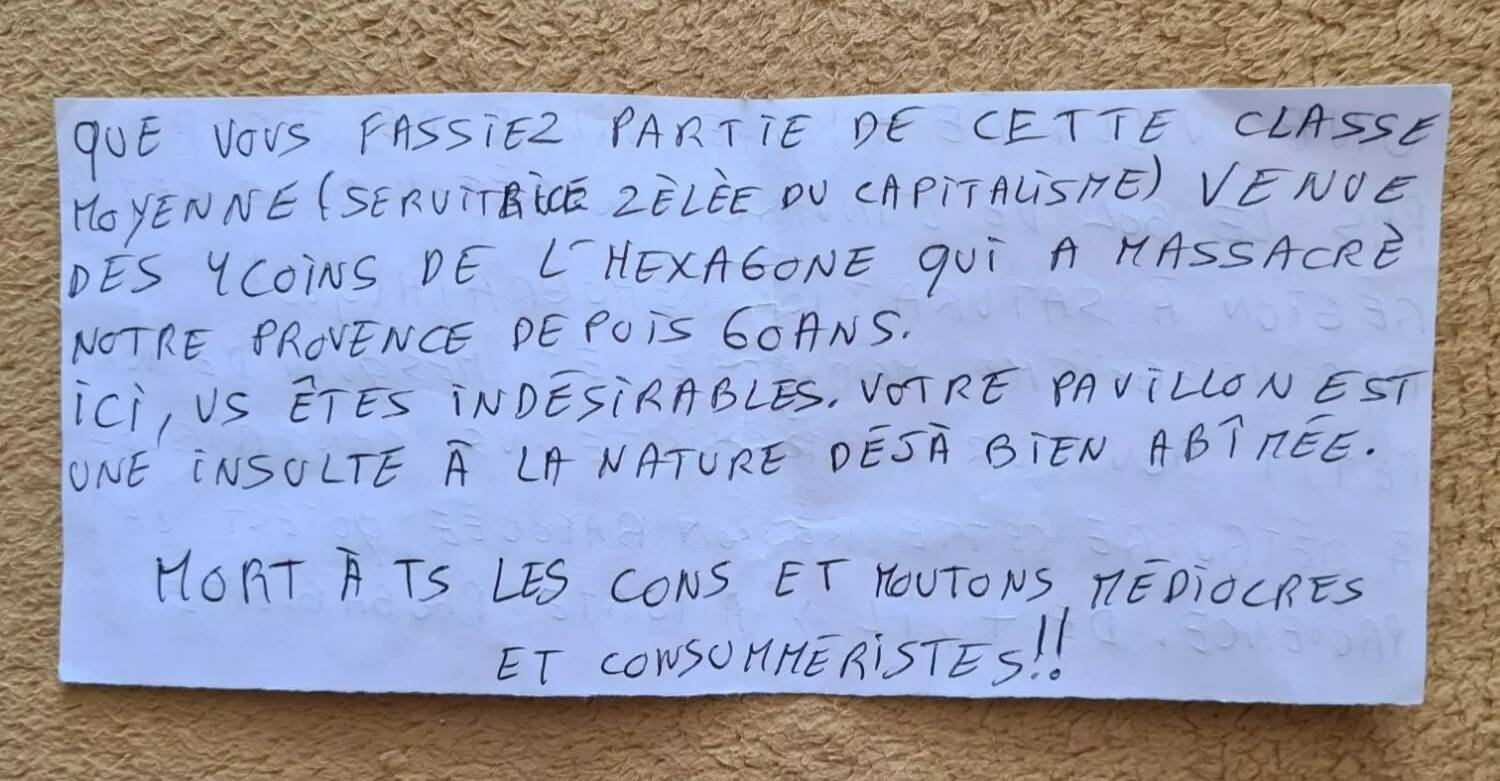 QUE VOUS FASSIEZ PARTIE DE CETTE CLASSE
MOYENNE (SERVITRICE ZÈLÈE DU CAPITALISME) VENUE
DES 4 COINS DE L'HEXAGONE QUI A MASSACRÈ
NOTRE PROVENCE DEPUIS 60 ANS.
ICI, VS ÊTES INDÉSIRABLES. VOTRE PAVILLON EST
UNE INSULTE À LA NATURE DÉJÀ BIEN ABÎMÉE.
MORT À TS LES CONS ET MOUTONS MÉDIOCRES
ET CONSUMMÉRISTES!!